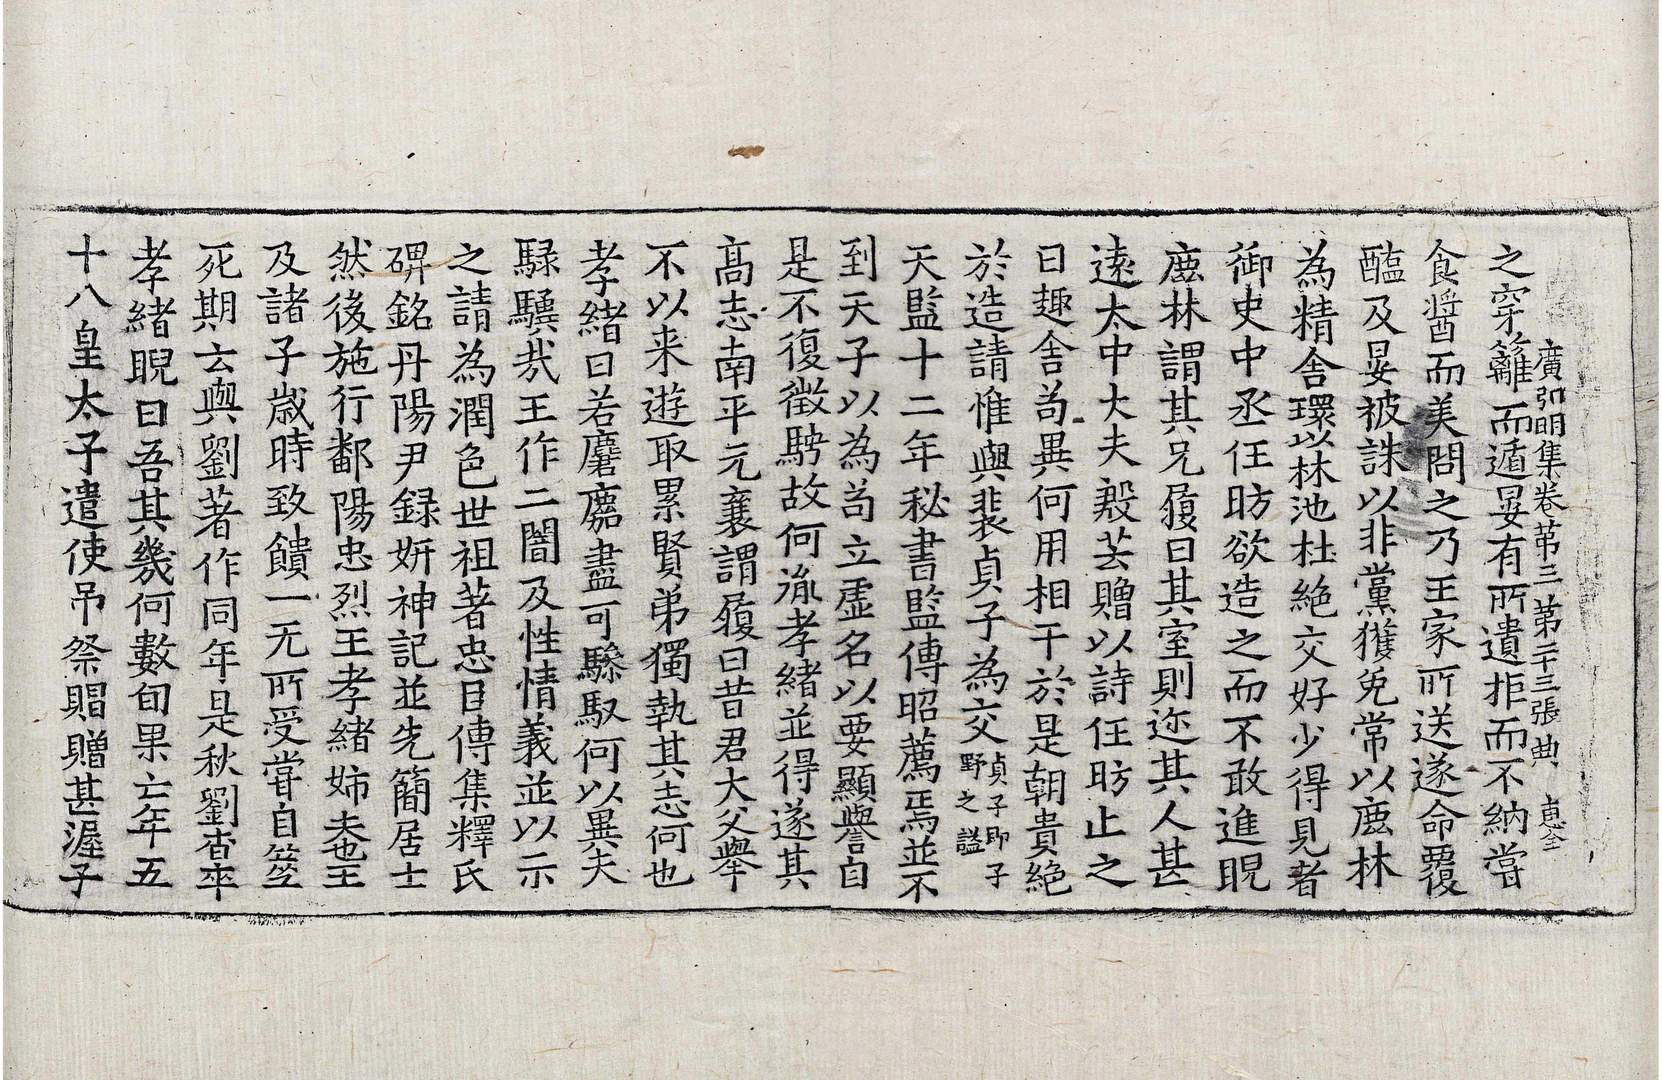 廣弘明集卷苐三 第二十三張 典
之穿籬而遁晏有所遺拒而不納嘗
食醬而美問之乃王家所送遂命覆
醢及晏被誅以非黨獲免常以鹿林
為精舍環以林池杜絶交好少得見者
御史中丞任昉欲造之而不敢進睨
鹿林謂其兄履曰其室則迩其人甚
遠太中大夫殷芸贈以詩任昉止之
曰趣舍苟異何用相干於是朝貴絶
於造請惟與裴貞子為交貞子即子野之謚
天監十二年秘書監傅昭薦焉並不
到天子以為苟立虛名以要顯譽自
是不復徵騁故何胤孝緒並得遂其
髙志南平元襄謂履曰昔君大父舉
不以来遊取累賢弟獨執其志何也
孝緒曰若麏麚盡可驂馭何以異夫
騄驥㢤王作二闇及性情義並以示
之請為潤色世祖著忠臣傳集釋氏
碑銘丹陽尹録妍神記並先簡居士
然後施行鄱陽忠烈王孝緒姉夫也王
及諸子歳時致饋一无所受嘗自筮
死期云與劉著作同年是秋劉杳卒
孝緒睨曰吾其幾何數旬果亡年五
十八皇太子遣使吊祭賵贈甚渥子